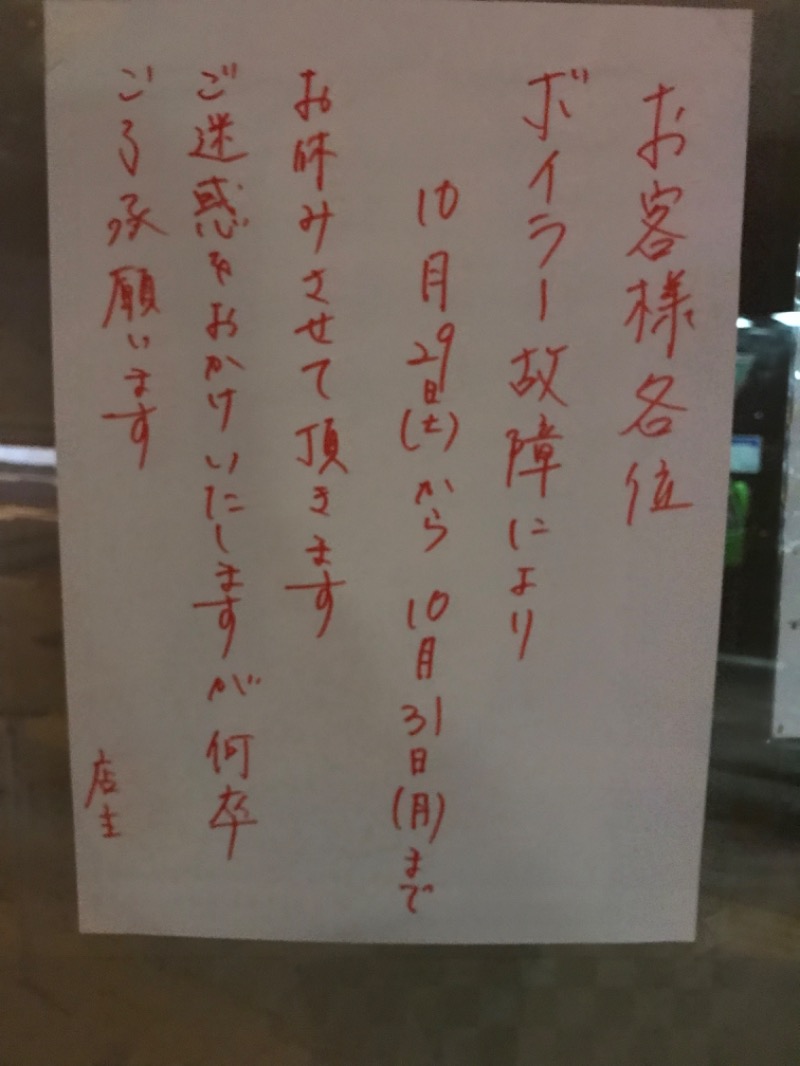 お客様各位
ボイラー故障により
10月29日(土)から10月31日(月)まで
お休みさせて頂きます
ご迷惑をおかけいたしますが何卒
ご了承願います
店主